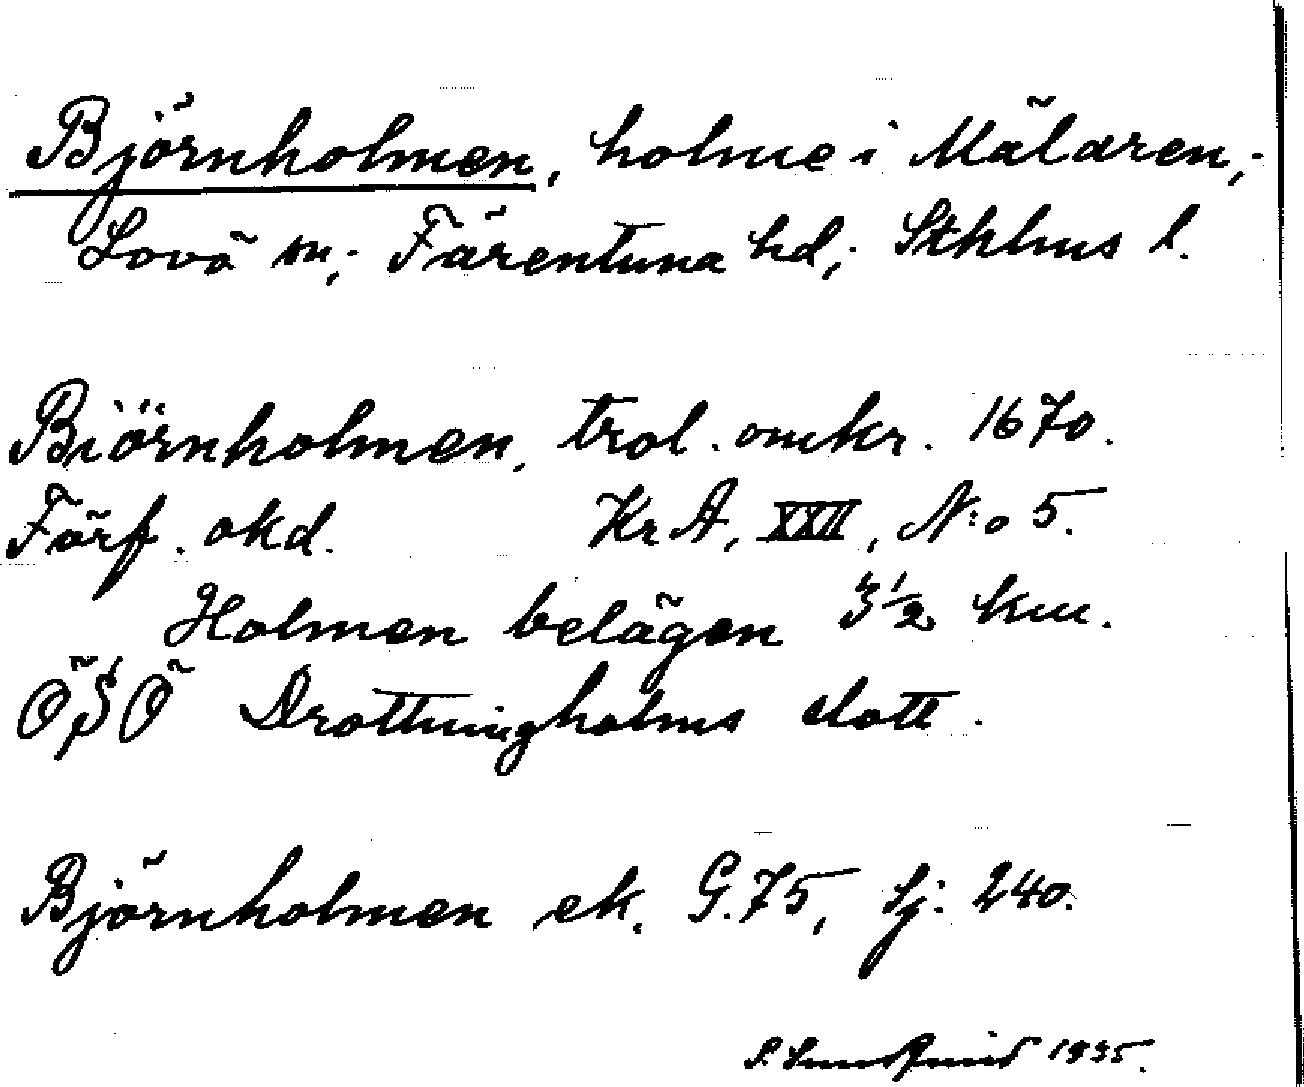 Björnholmen, holme i Mälaren;
Lovö sn; Färentuna hd; Sthlms l.
Biörnholmen, trol. omkr. 1670.
Förf. okd. KrA, XXII, N:o 5.
Holmen belägen 3½ km.
ÖSÖ Drottningholms slott.
Björnholmen ek. G. 75, Sj: 240.
1935.